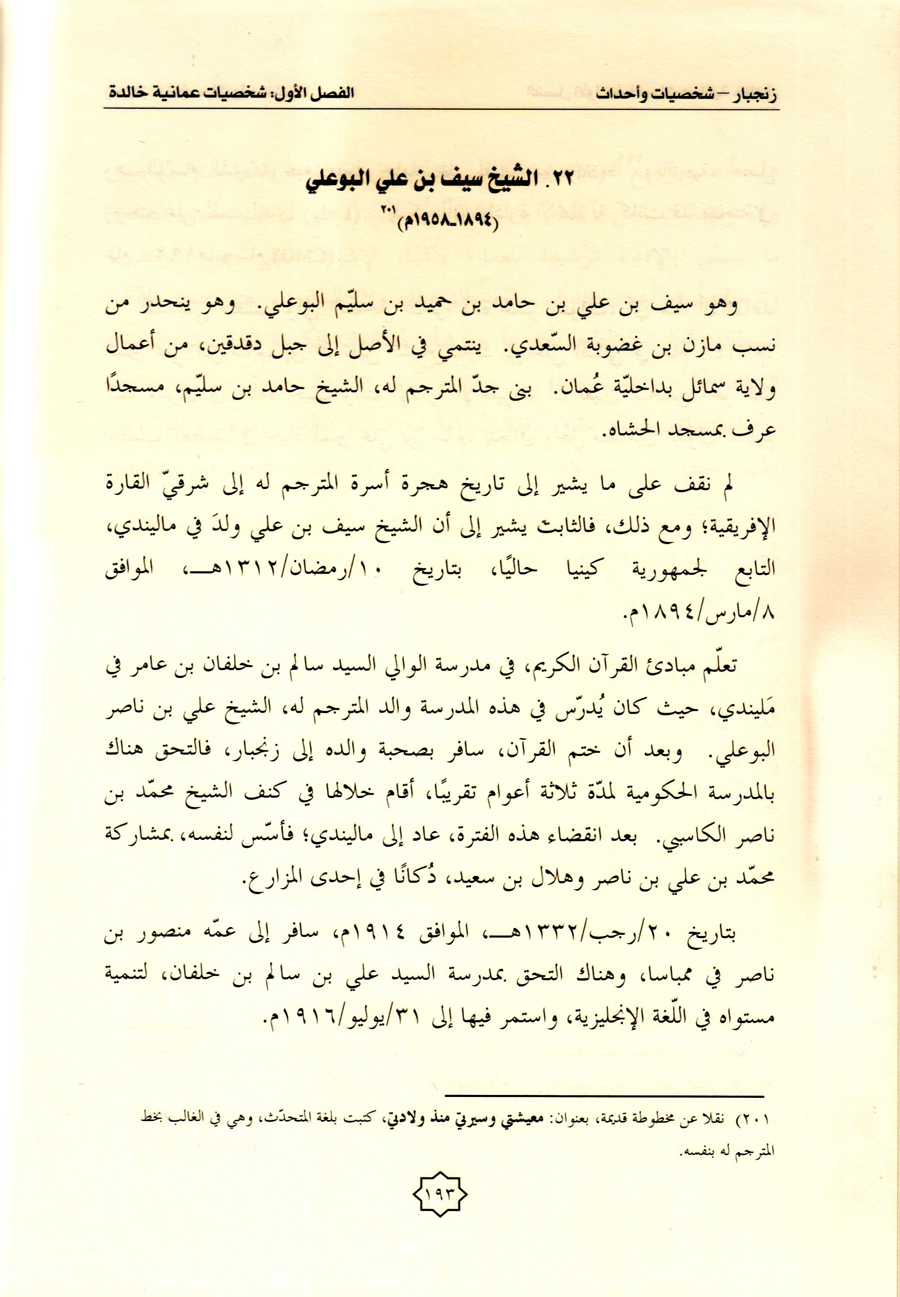 زنجبار – شخصيات وأحداث
الفصل الأول: شخصيات عمانية خالدة
٢٢. الشيخ سيف بن علي البوعلي
(١٨٩٤ـ١٩٥٨م)٢٠١
وهو سيف بن علي بن حامد بن حميد بن سليّم البوعلي. وهو ينحدر من
نسب مازن بن غضوبة السّعدي. ينتمي في الأصل إلى جبل دقدقين، من أعمال
ولاية سمائل بداخليّة عُمان. بنى جدّ المترجم له، الشيخ حامد بن سليّم، مسجدًا
عرف بمسجد الحشاه.
لم نقف على ما يشير إلى تاريخ هجرة أسرة المترجم له إلى شرقيّ القارة
الإفريقية؛ ومع ذلك، فالثابت يشير إلى أن الشيخ سيف بن علي ولدَ في ماليندي،
التابع لجمهورية كينيا حاليًا، بتاريخ ١٠/رمضان/١٣١٢هــ، الموافق
٨/مارس/١٨٩٤م.
تعلّم مبادئ القرآن الكريم، في مدرسة الوالي السيد سالم بن خلفان بن عامر في
مَليندي، حيث كان يُدرّس في هذه المدرسة والد المترجم له، الشيخ علي بن ناصر
البوعلي. وبعد أن ختم القرآن، سافر بصحبة والده إلى زنجبار، فالتحق هناك
بالمدرسة الحكومية لمدّة ثلاثة أعوام تقريبًا، أقام خلالها في كنف الشيخ محمّد بن
ناصر الكاسبي. بعد انقضاء هذه الفترة، عاد إلى ماليندي؛ فأسّس لنفسه، بمشاركة
محمّد بن علي بن ناصر وهلال بن سعيد، دُكانًا في إحدى المزارع.
بتاريخ ٢٠/رجب/١٣٣٢هــ، الموافق ١٩١٤م، سافر إلى عمّه منصور بن
ناصر في ممباسا، وهناك التحق بمدرسة السيد علي بن سالم بن خلفان، لتنمية
مستواه في اللّغة الإنجليزية، واستمر فيها إلى ٣١/يوليو/١٩١٦م.
٢٠١) نقلا عن مخطوطة قديمة، بعنوان: معيشتي وسيرتي منذ ولادتي، كتبت بلغة المتحدّث، وهي في الغالب بخط
المترجم له بنفسه.
١٩٣